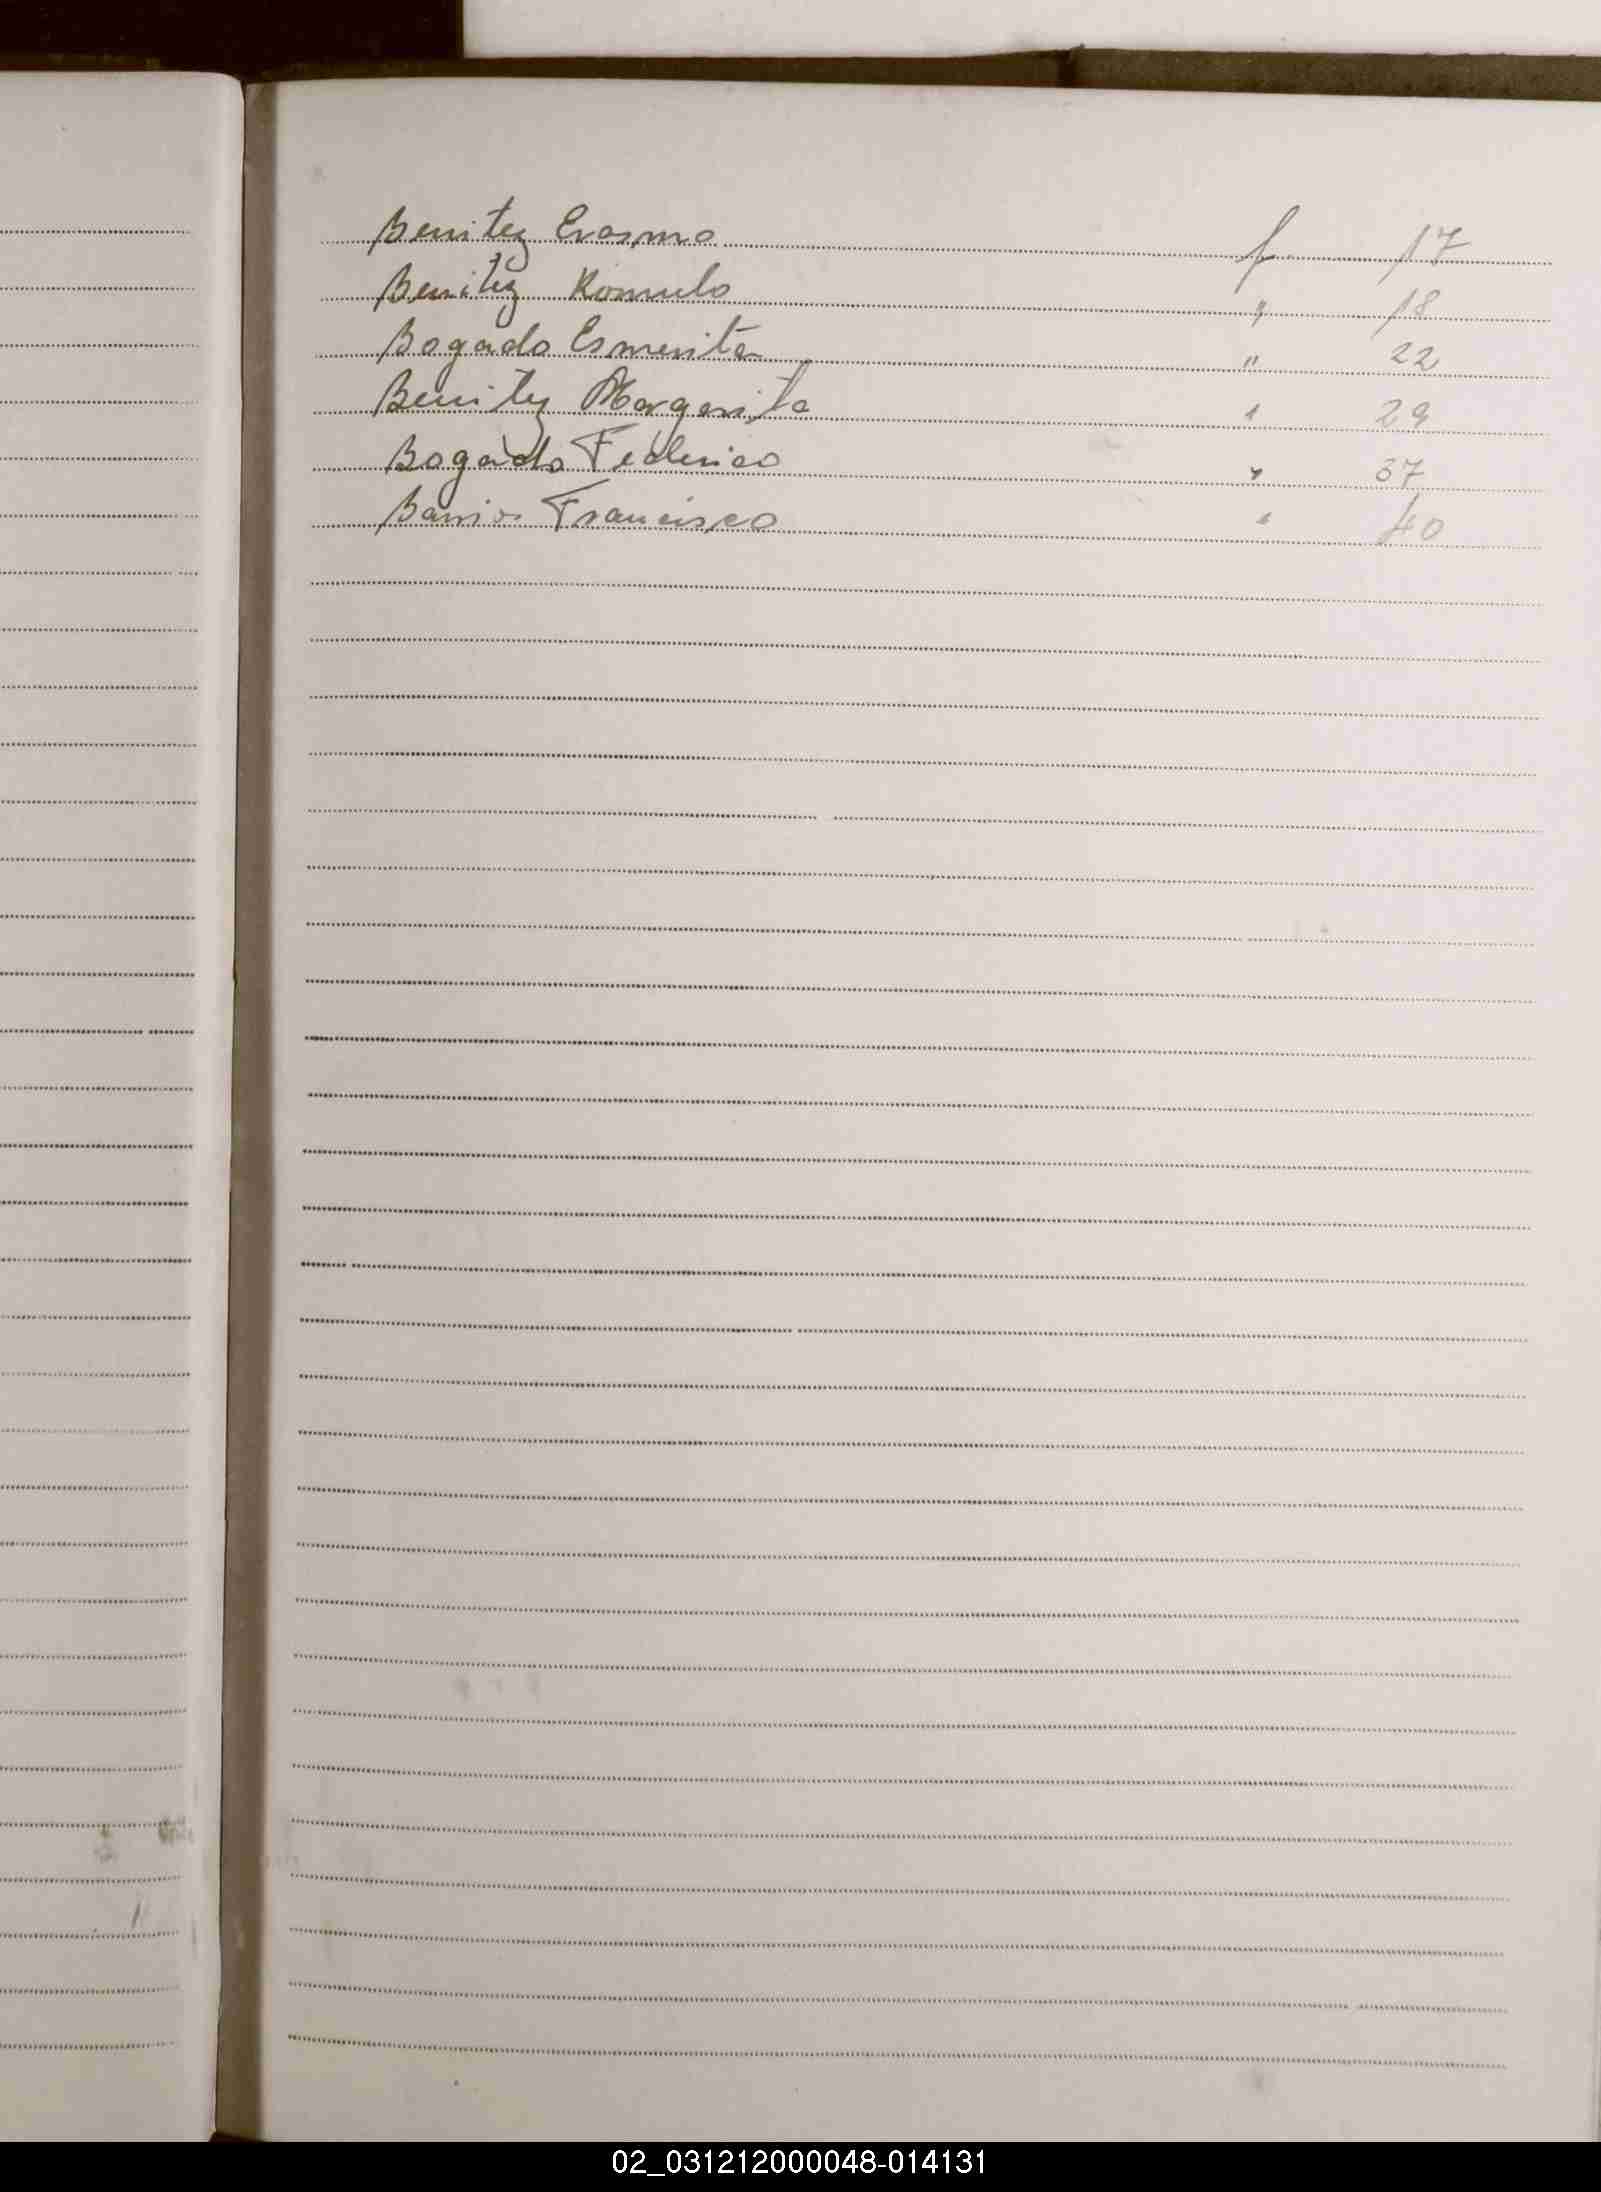 Benitez Erasmo f 17
Benitez Romulo " 18
Bogado Esmerita " 22
Benitez Margarita " 29
Bogado Federico " 37
Barrios Francisco " 40
02_031212000048-014131